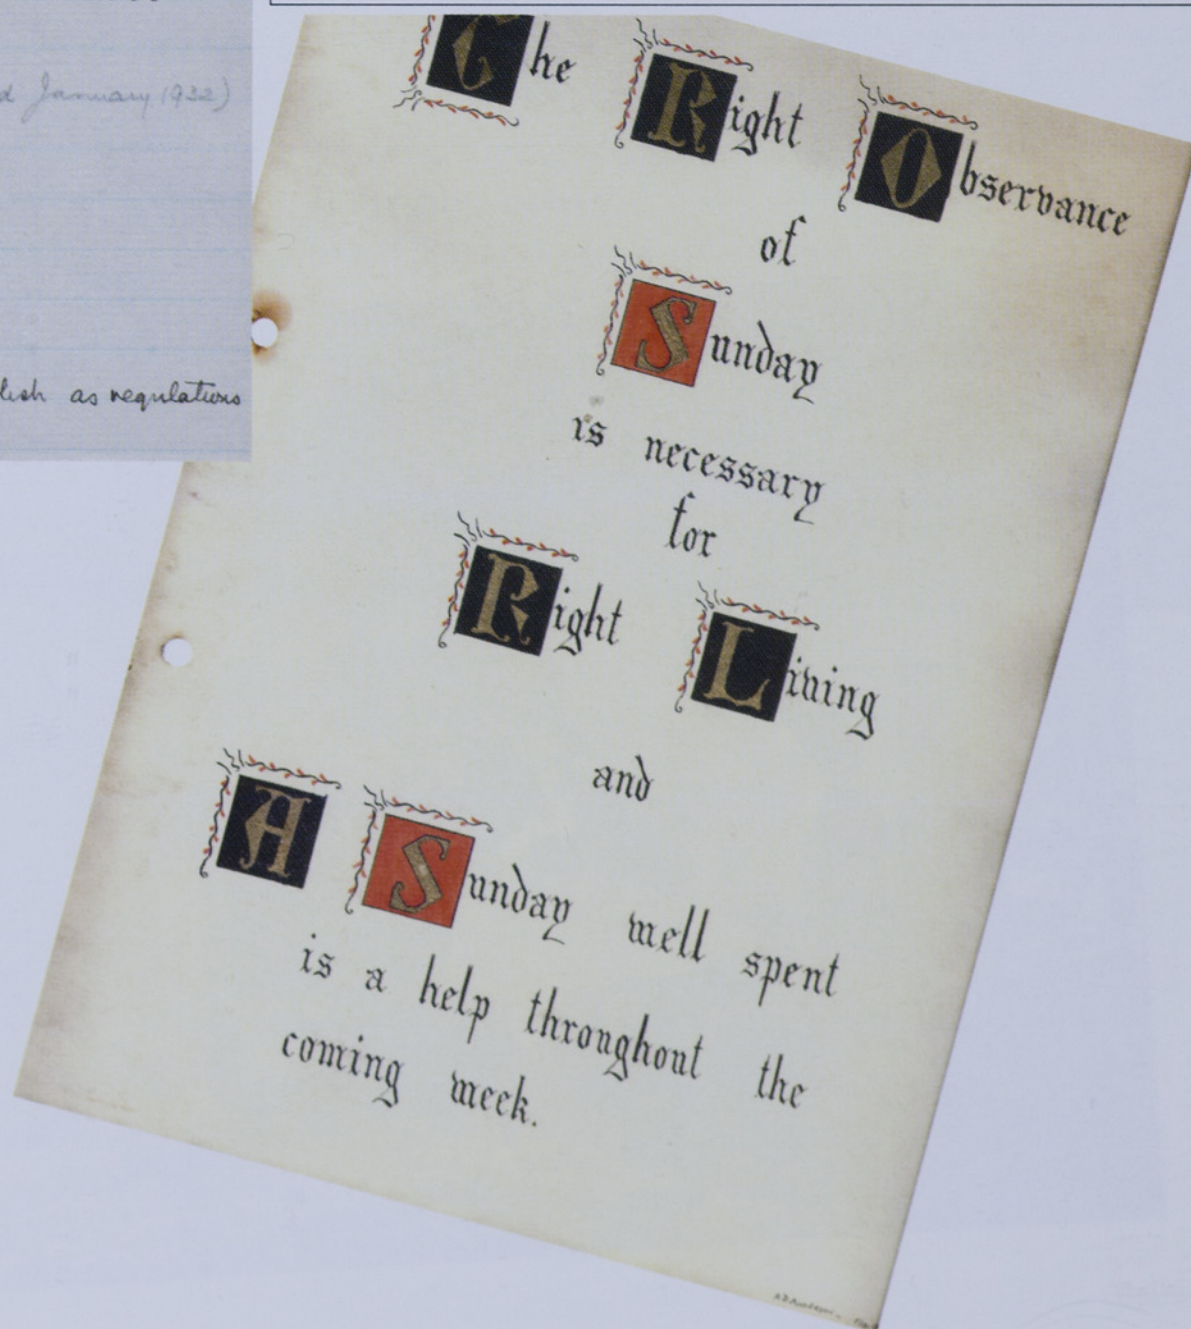 January 1932)
as regulations
The Right Observance
of
Sunday
is necessary
for
Right Living
and
A Sunday well spent
is a help throughout the
coming week.